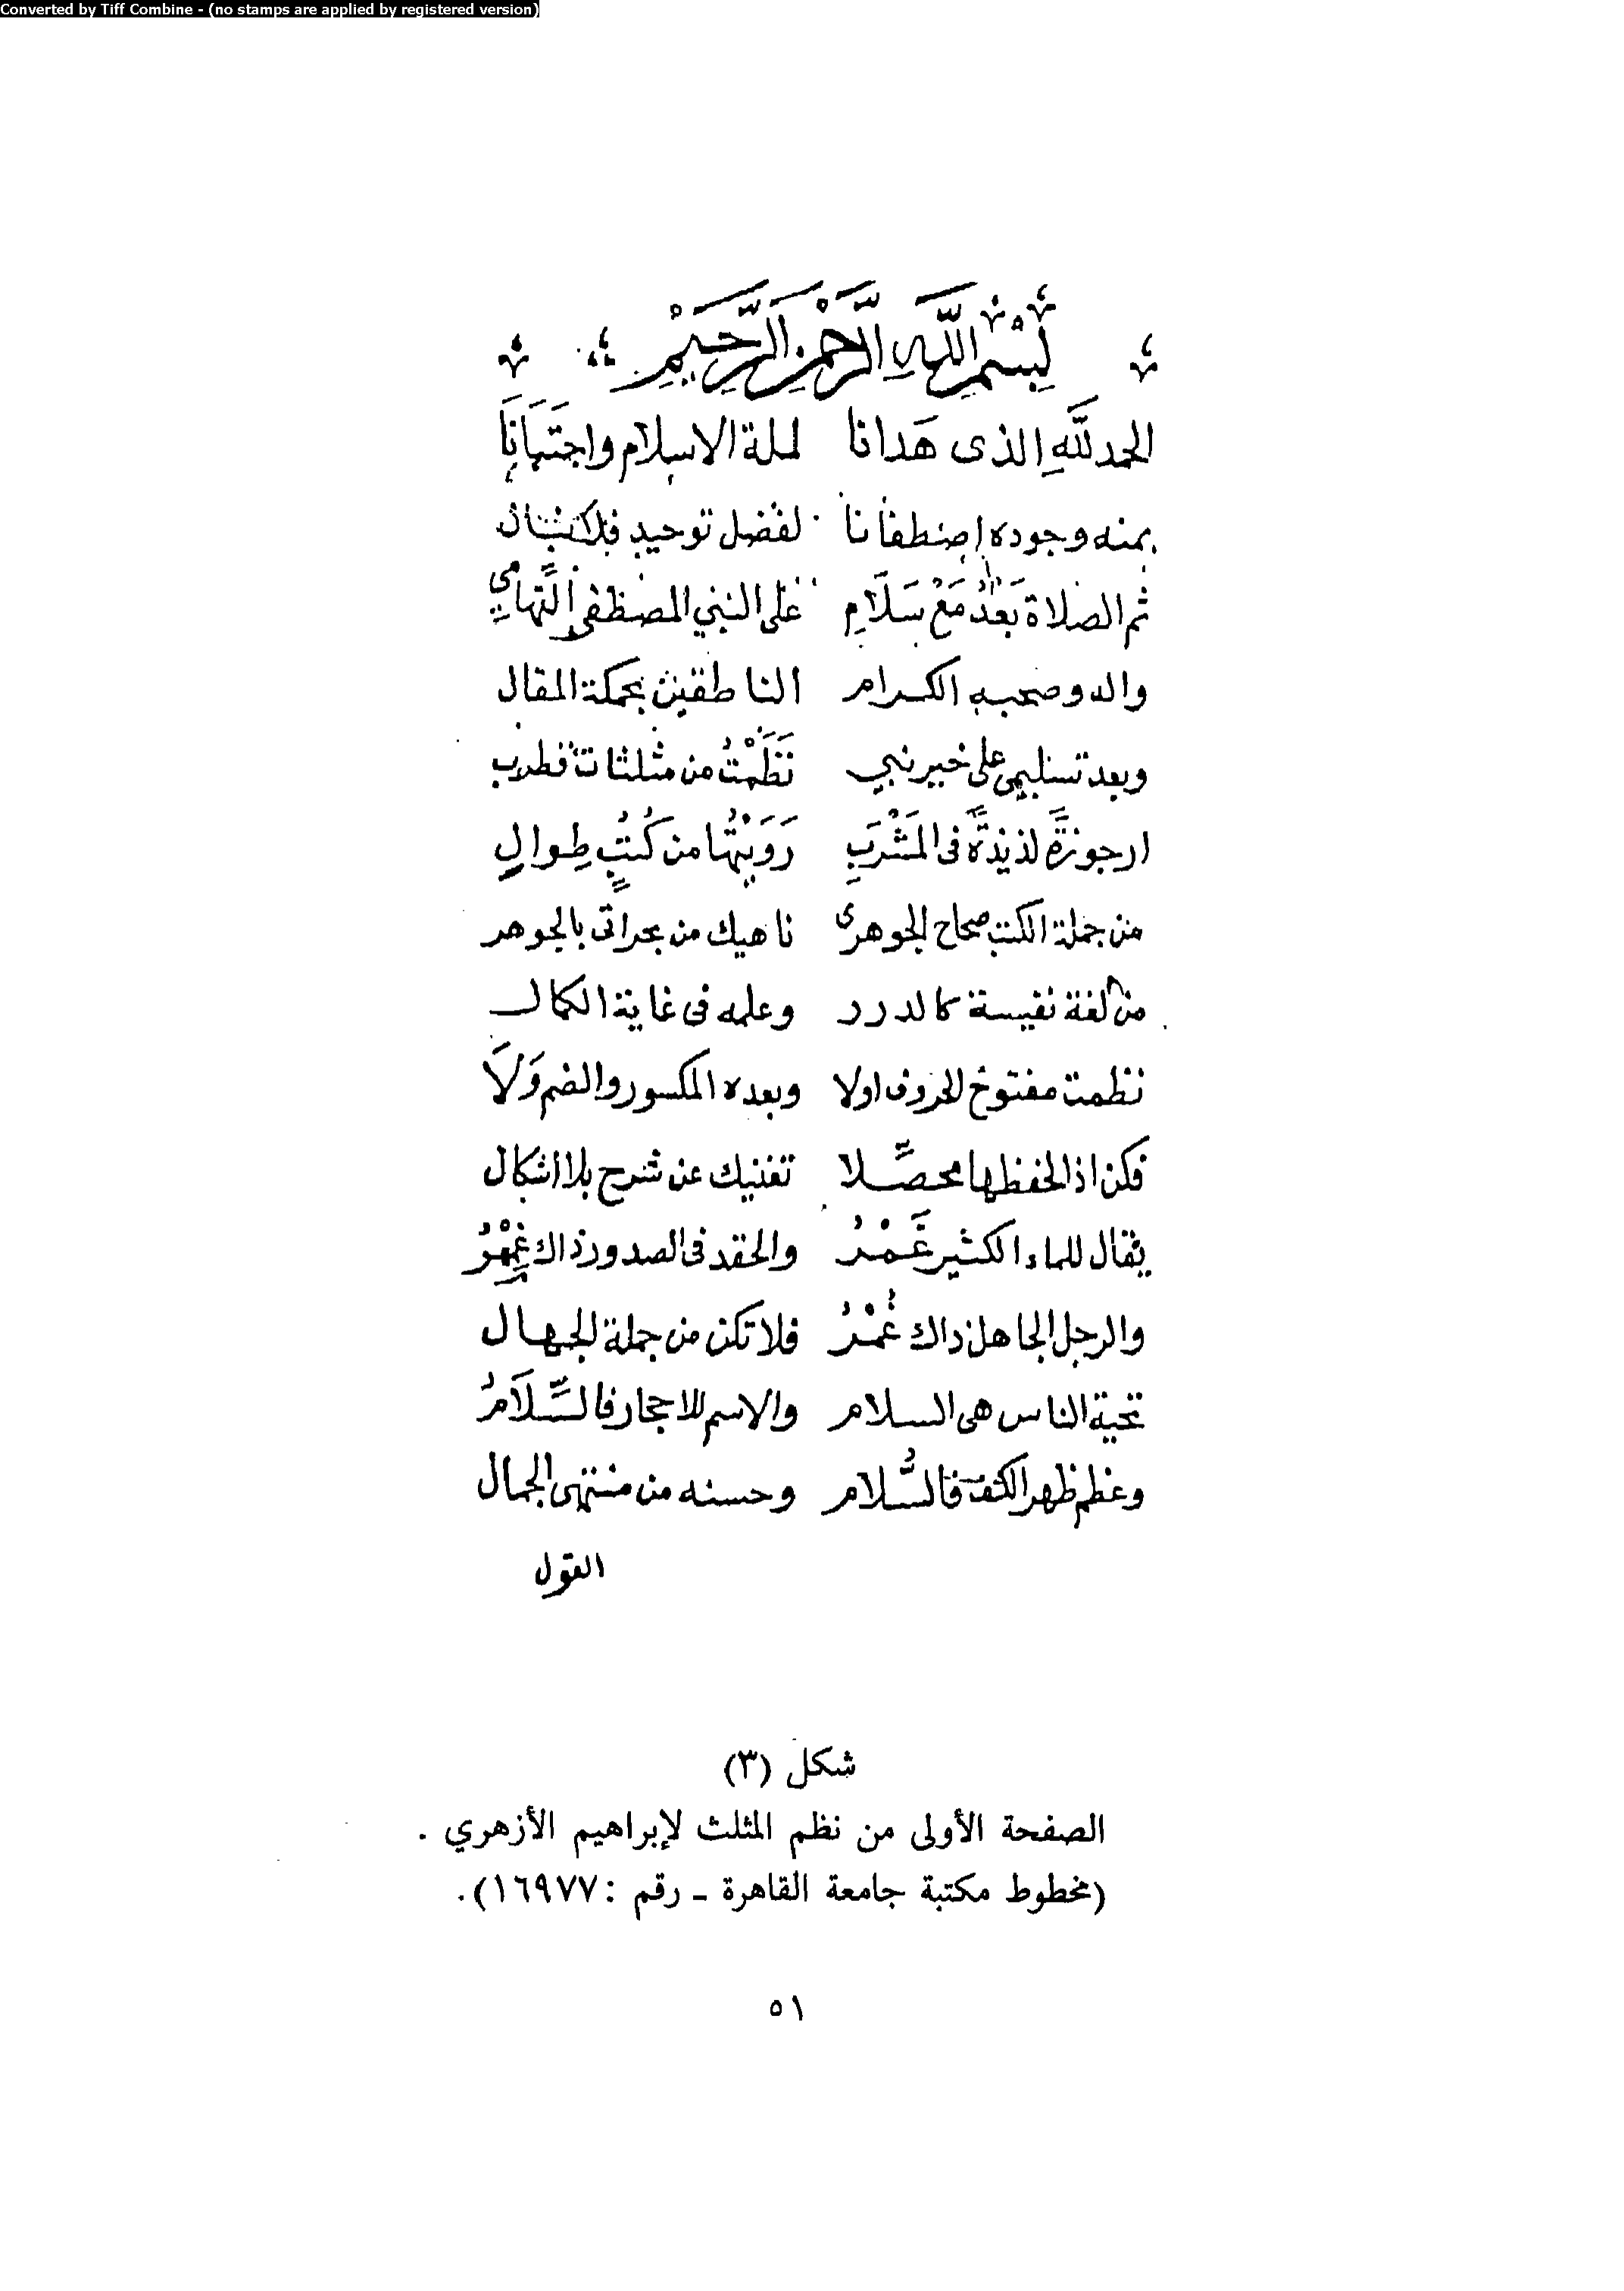 Converted by Tiff Combine - (no stamps are applied by registered version)
بِسْمِ اللَّهِ الرَّحْمَنِ الرَّحِيمِ
الحمد للَّهِ الذى هَدانا لملة الاسلام واجتَبَانَا
بمنه وجوده اصطفانا لفضل توحيد
ثم الصلاة بعدُ مَعْ سَلَامِ على النبي المصطفى التهامي
واله وصحبه الكرام الناطقين بحكمة المقال
وبعد تسليمى على خير نبي نَظَمْتُ من مثلثات قطرب
ارجوزةً لذيذةً فى المَشْرَبِ رَوَيْتُهَا من كُتُبٍ طِوالٍ
من جملة الكتب صحاح الجوهرى ناهيك من بحر اتى بالجوهر
من لغة نفيسة كالدرر وعلمه فى غاية الكمال
نظمت مفتوح الحروف اولا وبعده المكسور والضم وَلَا
فكن اذا لحفظها محصِّلا تغنيك عن شرح بلا اشكال
يقال للماء الكثير غَمْرُ والحقد فى الصدور ذاك غِمْرُ
والرجل الجاهل ذاك غُمْرُ فلا تكن من جملة الجهال
تحية الناس هى السلام والاسم للاحجار فالسِّلَامُ
وعظم ظهر الكف فالسُّلام وحسنه من منتهى الجمال
القول
شكل (٣)
الصفحة الأولى من نظم المثلث لإبراهيم الأزهري .
(مخطوط مكتبة جامعة القاهرة - رقم : ١٦٩٧٧).
٥١